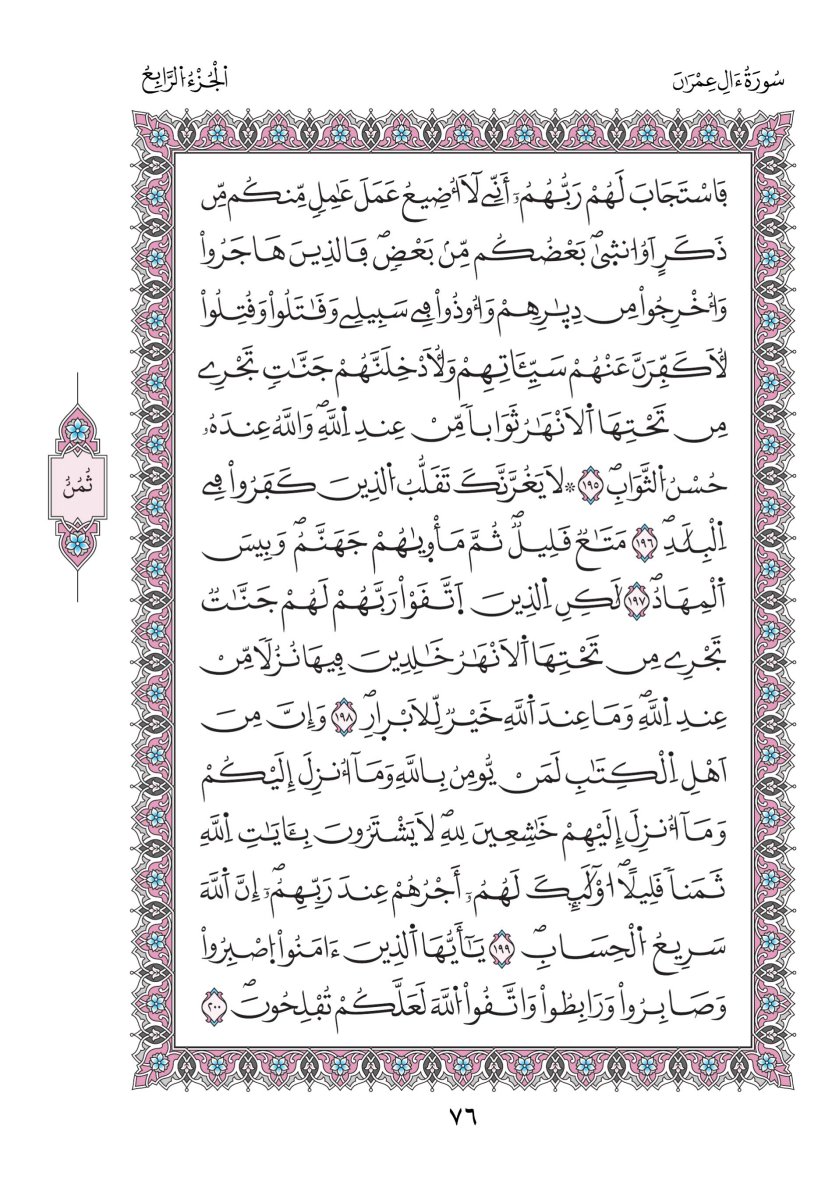 سُورَةُ ءَالِ عِمْرَٰنَ
اَ۬لْجُزْءُ اُ۬لرَّابِعُ
فَاسْتَجَابَ لَهُمْ رَبُّهُمُۥٓ أَنِّے لَآ أُضِيعُ عَمَلَ عَٰمِلٖ مِّنكُم مِّن
ذَكَرٍ اَوُ ا۟نث۪يٰۖ بَعْضُكُم مِّنۢ بَعْضٖۖ فَالذِينَ هَاجَرُواْ
وَأُخْرِجُواْ مِن دِيٰ۪رِهِمْ وَأُوذُواْ فِے سَبِيلِے وَقَٰتَلُواْ وَقُتِلُواْ
لَأُكَفِّرَنَّ عَنْهُمْ سَيِّـَٔاتِهِمْ وَلَأُدْخِلَنَّهُمْ جَنَّٰتٖ تَجْرِے
مِن تَحْتِهَا اَ۬لَانْهَٰرُ ثَوَاباٗ مِّنْ عِندِ اِ۬للَّهِۖ وَاللَّهُ عِندَهُۥ
حُسْنُ اُ۬لثَّوَابِۖ ١٩٥ ۞ لَا يَغُرَّنَّكَ تَقَلُّبُ اُ۬لذِينَ كَفَرُواْ فِے
اِ۬لْبِلَٰدِۖ ١٩٦ مَتَٰعٞ قَلِيلٞۖ ثُمَّ مَأْو۪يٰهُمْ جَهَنَّمُۖ وَبِيسَ
اَ۬لْمِهَادُۖ ١٩٧ لَٰكِنِ اِ۬لذِينَ اَ۪تَّقَوْاْ رَبَّهُمْ لَهُمْ جَنَّٰتٞ
تَجْرِے مِن تَحْتِهَا اَ۬لَانْهَٰرُ خَٰلِدِينَ فِيهَا نُزُلاٗ مِّنْ
عِندِ اِ۬للَّهِۖ وَمَا عِندَ اَ۬للَّهِ خَيْرٞ لِّلَابْر۪ارِۖ ١٩٨ وَإِنَّ مِنَ
اَهْلِ اِ۬لْكِتَٰبِ لَمَنْ يُّومِنُ بِاللَّهِ وَمَآ أُنزِلَ إِلَيْكُمْ
وَمَآ أُنزِلَ إِلَيْهِمْ خَٰشِعِينَ لِلهِۖ لَا يَشْتَرُونَ بِـَٔايَٰتِ اِ۬للَّهِ
ثَمَناٗ قَلِيلاًۖ ا۟وْلَٰٓئِكَ لَهُمُۥٓ أَجْرُهُمْ عِندَ رَبِّهِمُۥٓۖ إِنَّ اَ۬للَّهَ
سَرِيعُ اُ۬لْحِسَابِۖ ١٩٩ يَٰٓأَيُّهَا اَ۬لذِينَ ءَامَنُواْ اُ۪صْبِرُواْ
وَصَابِرُواْ وَرَابِطُواْ وَاتَّقُواْ اُ۬للَّهَ لَعَلَّكُمْ تُفْلِحُونَۖ ٢٠٠
ثُمُنُ
٧٦